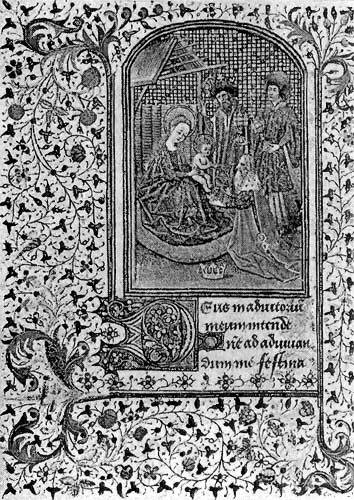 Deus in adiutoriū
meum intende
Dn̄e ad adiuuan
dum me festina